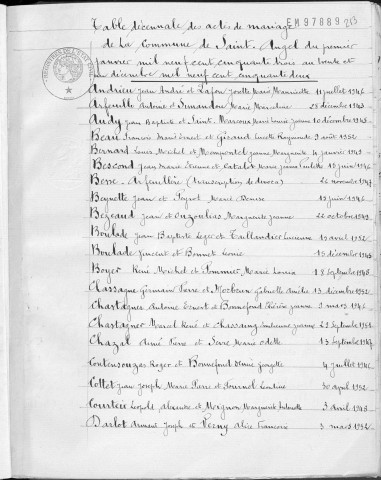 EM 97089 213
Table décennale des actes de mariage
de La Commune de Saint-Angel du premier
janvier mil neuf cent cinquante trois au trente et
un décembre mil neuf cent cinquante deux
Andrieu Jean André et Lafon Marie 11 juillet 1946
Arfeuille Antoine et Simandou Marie Marceline 28 décembre 1943
Audy Jean Baptiste et Saint-Marsoux Marie Louise Jeanne 10 décembre 1945
Beau François Marie Ernest et Giraud Lucette Raymonde 9 août 1952
Bernard Louis Michel et Jeanne Marguerite 4 janvier 1943
Bescond Jean Marie Etienne et Catalot Marie Jeanne 15 juin 1946
Besse-Arfeuillère (transcription de divorce) 26 novembre 1947
Beynette Jean et Peyrat Marie Denise 15 juin 1946
Bezeaud Jean et Marguerite Jeanne 26 octobre 1949
Boulade Jean Baptiste Léger et Taillandier Lucienne 19 avril 1952
Boulade Vincent et Bonnet 15 décembre 1945
Boyer René Michel et Pommier Marie Louise 18 Septembre 1948
Chassagne Germain Pierre et Gabrielle Amélie 13 décembre 1952
Chartagner Antoine Ernest et Bonnefond Thérèse Jeanne 9 mars 1946
Chartagner Marcel René et Chassaing Jeanne 29 Septembre 1951
Chazal Aimé Pierre et Serre Marie Odette 13 Septembre 1947
Contensouzas Roger et Bonnefond Denise Georgette 4 juillet 1946
Cottet Jean Joseph Marie Pierre et 30 avril 1952
Courteix Léopold Alexandre et Moignon Marguerite Antoinette 3 avril 1948
Darlot Armand Joseph et Verny Alice Francine 3 mars 1952